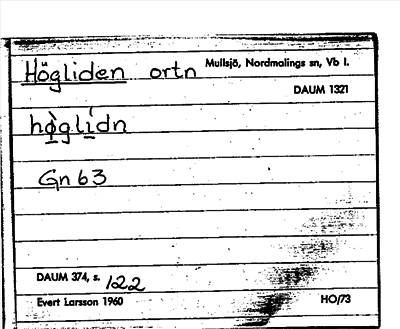 Högliden ortn Mullsjö, Nordmalings sn, Vb l.
DAUM 1321
hø̀glìdn
Gn 63
DAUM 374, s. 122
Evert Larsson 1960 HO/73